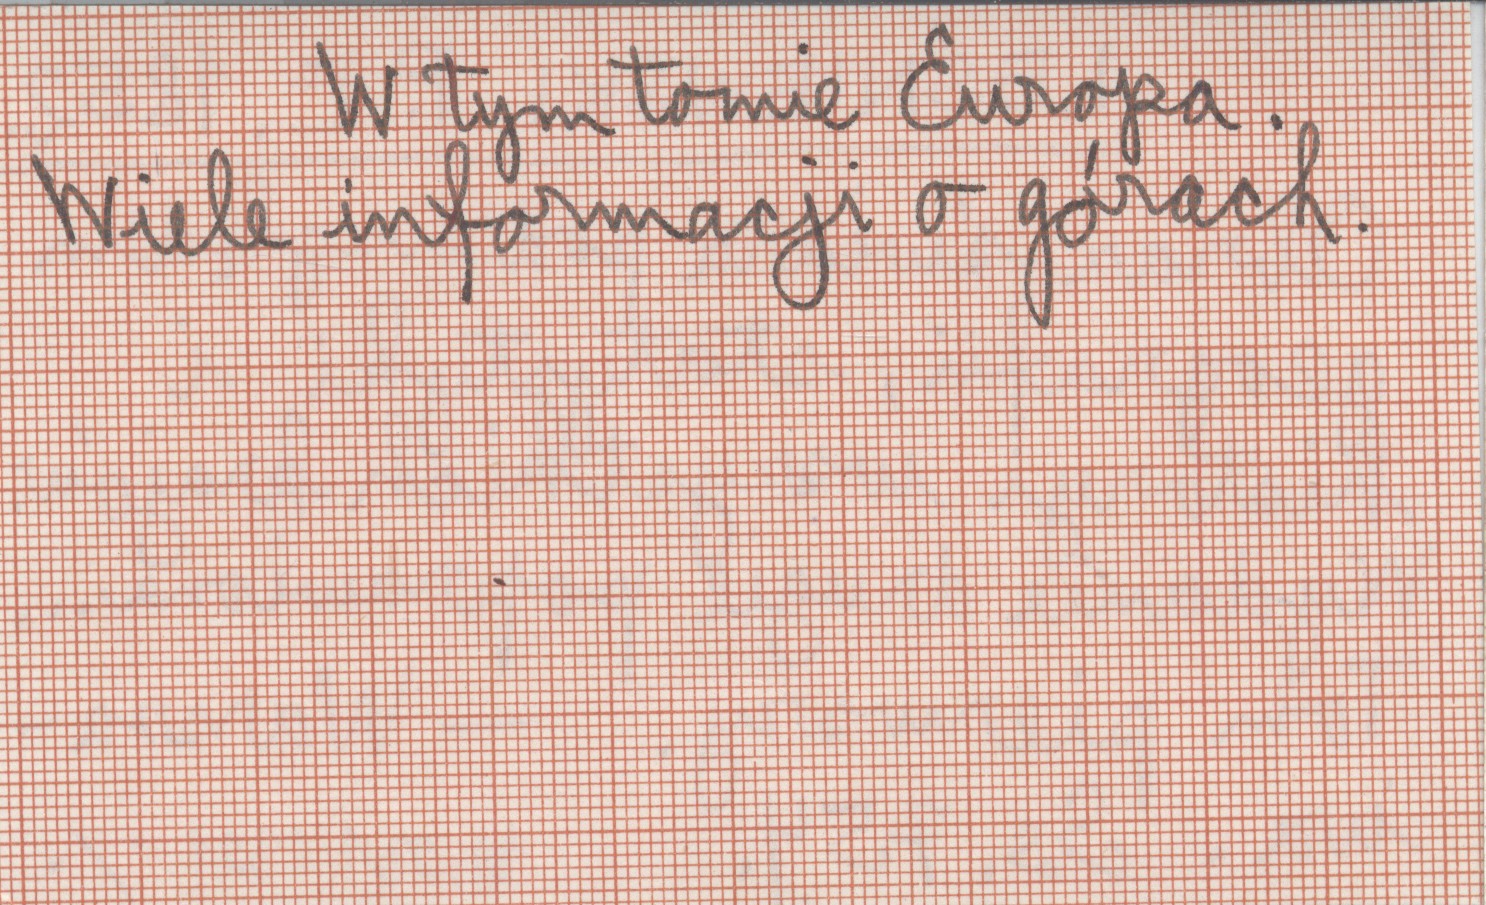 W tym tomie Europa.
Wiele informacji o górach.